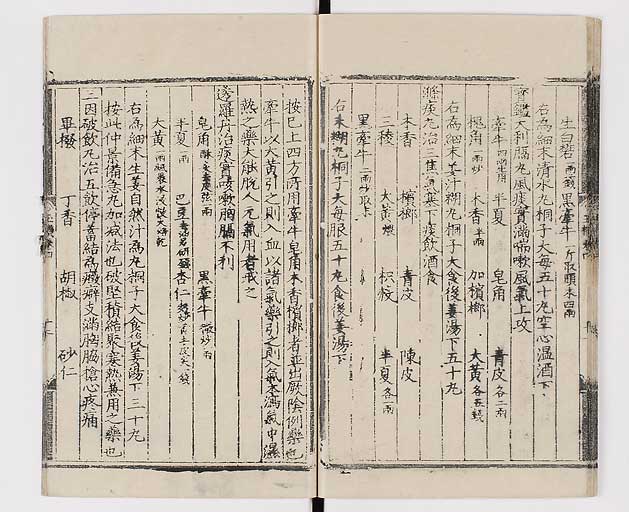 生白礬一兩 黑牽牛一斤取頭末四兩
右為細末清水丸桐子大每五十丸空心溫酒下
寶鑑大利膈丸風痰實滿喘嗽風氣上攻
牽牛四兩生用 半夏 皂角 青皮各二兩
槐角一兩炒 木香半兩 加檳榔 大黃各五錢
右為細末姜汁糊丸桐子大食後姜湯下五十丸
滌痰丸治三焦氣塞下痰飲酒食
木香 檳榔 青皮 陳皮
三稜 大黃煨 枳殼 半夏各一兩
黑牽牛二兩炒取末
右末糊丸桐子大每服五十丸食後姜湯下
按已上四方所用牽牛皂角木香檳榔者並出厥陰例藥也
牽牛以大黃引之則入血以諸氣藥引之則入氣本瀉氣中濕
熱之藥大能脫人元氣用者戒之
透羅丹治痰實咳嗽胸膈不利
皂角酥炙去皮弦一兩 黑牽牛微炒一兩
半夏一兩 巴豆去油另研 杏仁
大黃一兩
右為細末生姜自然汁為丸桐子大食後姜湯下三十丸
按此仲景備急丸加減法也破堅積結聚寒熱兼用之藥也
三因破飲丸治五飲停蓄結為癥癖支滿胸脇愴心疼痛
蓽撥 丁香 胡椒 砂仁